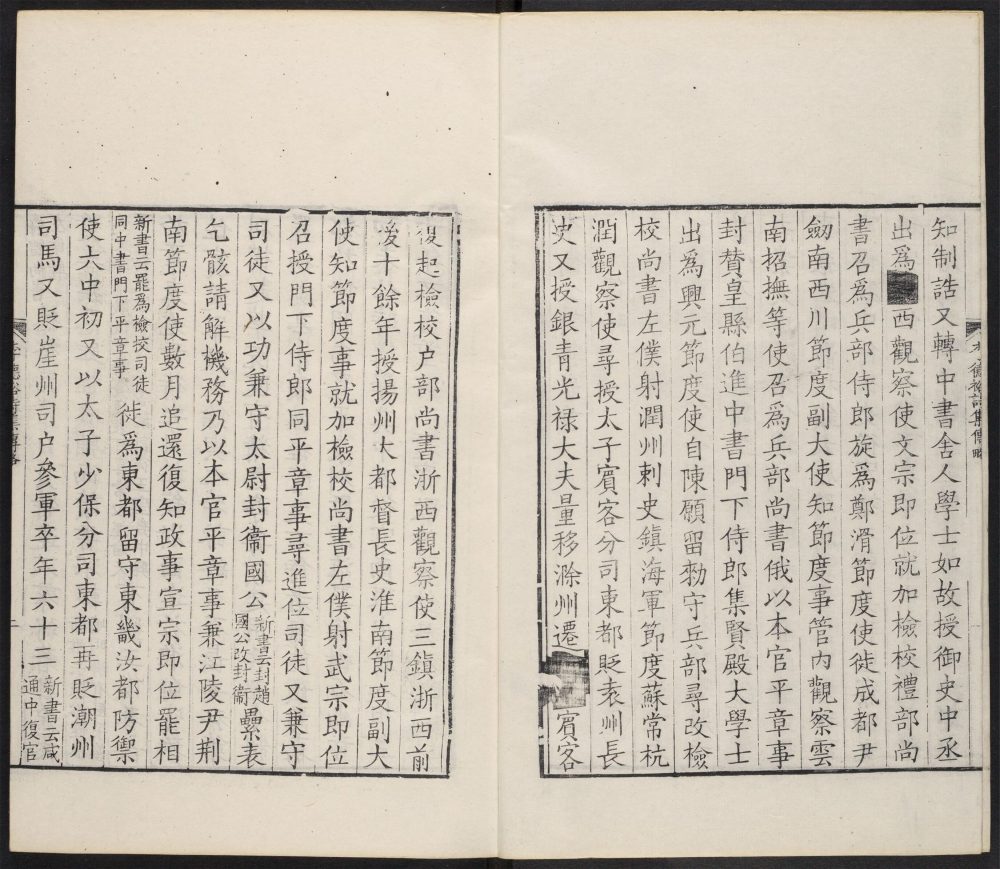 知制誥又轉中書舍人學士如故授御史中丞
出為西觀察使文宗即位就加檢校禮部尚
書召為兵部侍郎旋為鄭滑節度使徙成都尹
劒南西川節度副大使知節度事管内觀察雲
南招撫等使召為兵部尚書俄以本官平章事
封贊皇縣伯進中書門下侍郎集賢殿大學士
出為興元節度使自陳願留勑守兵部尋改檢
校尚書左僕射潤州刺史鎮海軍節度蘇常杭
潤觀察使尋授太子賓客分司東都貶袁州長
史又授銀青光禄大夫量移滁州遷賓客
復起檢校户部尚書浙西觀察使三鎮浙西前
後十餘年授揚州大都督長史淮南節度副大
使知節度事就加檢校尚書左僕射武宗即位
召授門下侍郎同平章事尋進位司徒又兼守
司徒又以功兼守太尉封衞國公新書云封趙國公改封衞纍表
乞骸請解機務乃以本官平章事兼江陵尹荆
南節度使數月追還復知政事宣宗即位罷相
新書云罷為檢挍司徒同中書門下平章事徙為東都留守東畿汝都防禦
使大中初又以太子少保分司東都再貶潮州
司馬又貶崖州司户參軍卒年六十三新書云咸通中復官